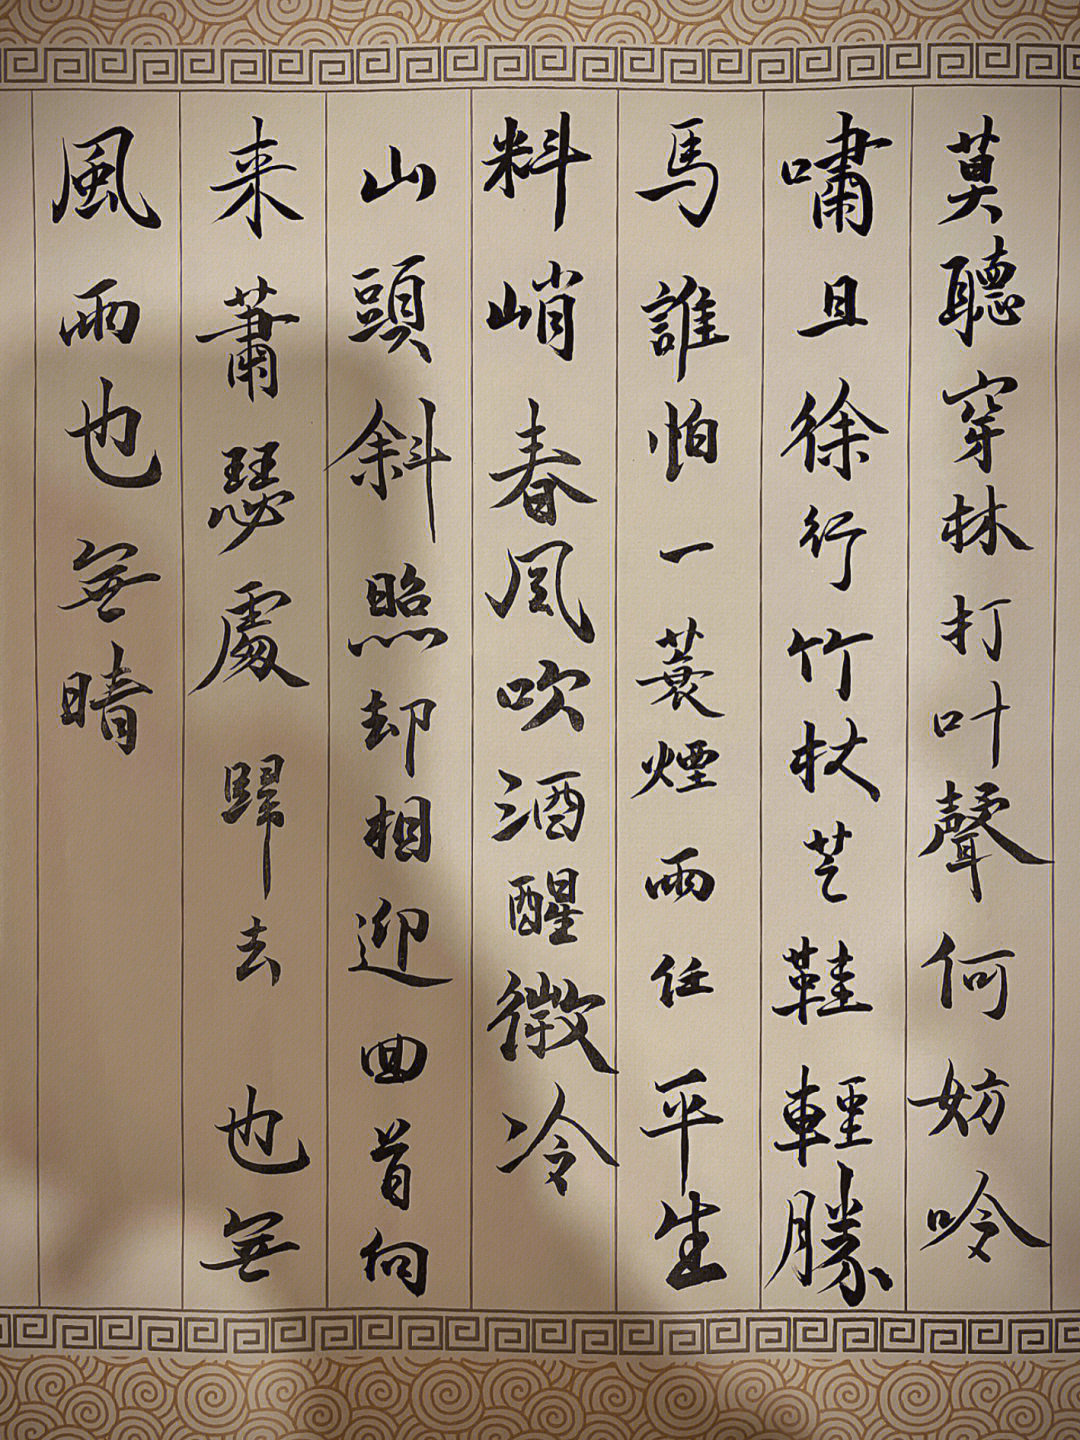 莫聽穿林打叶聲何妨吟
嘯且徐行竹杖芒鞋輕勝
馬誰怕一蓑煙雨任平生
料峭春风吹酒醒微冷
山頭斜照却相迎回首向
来蕭瑟處歸去也無
風雨也無晴